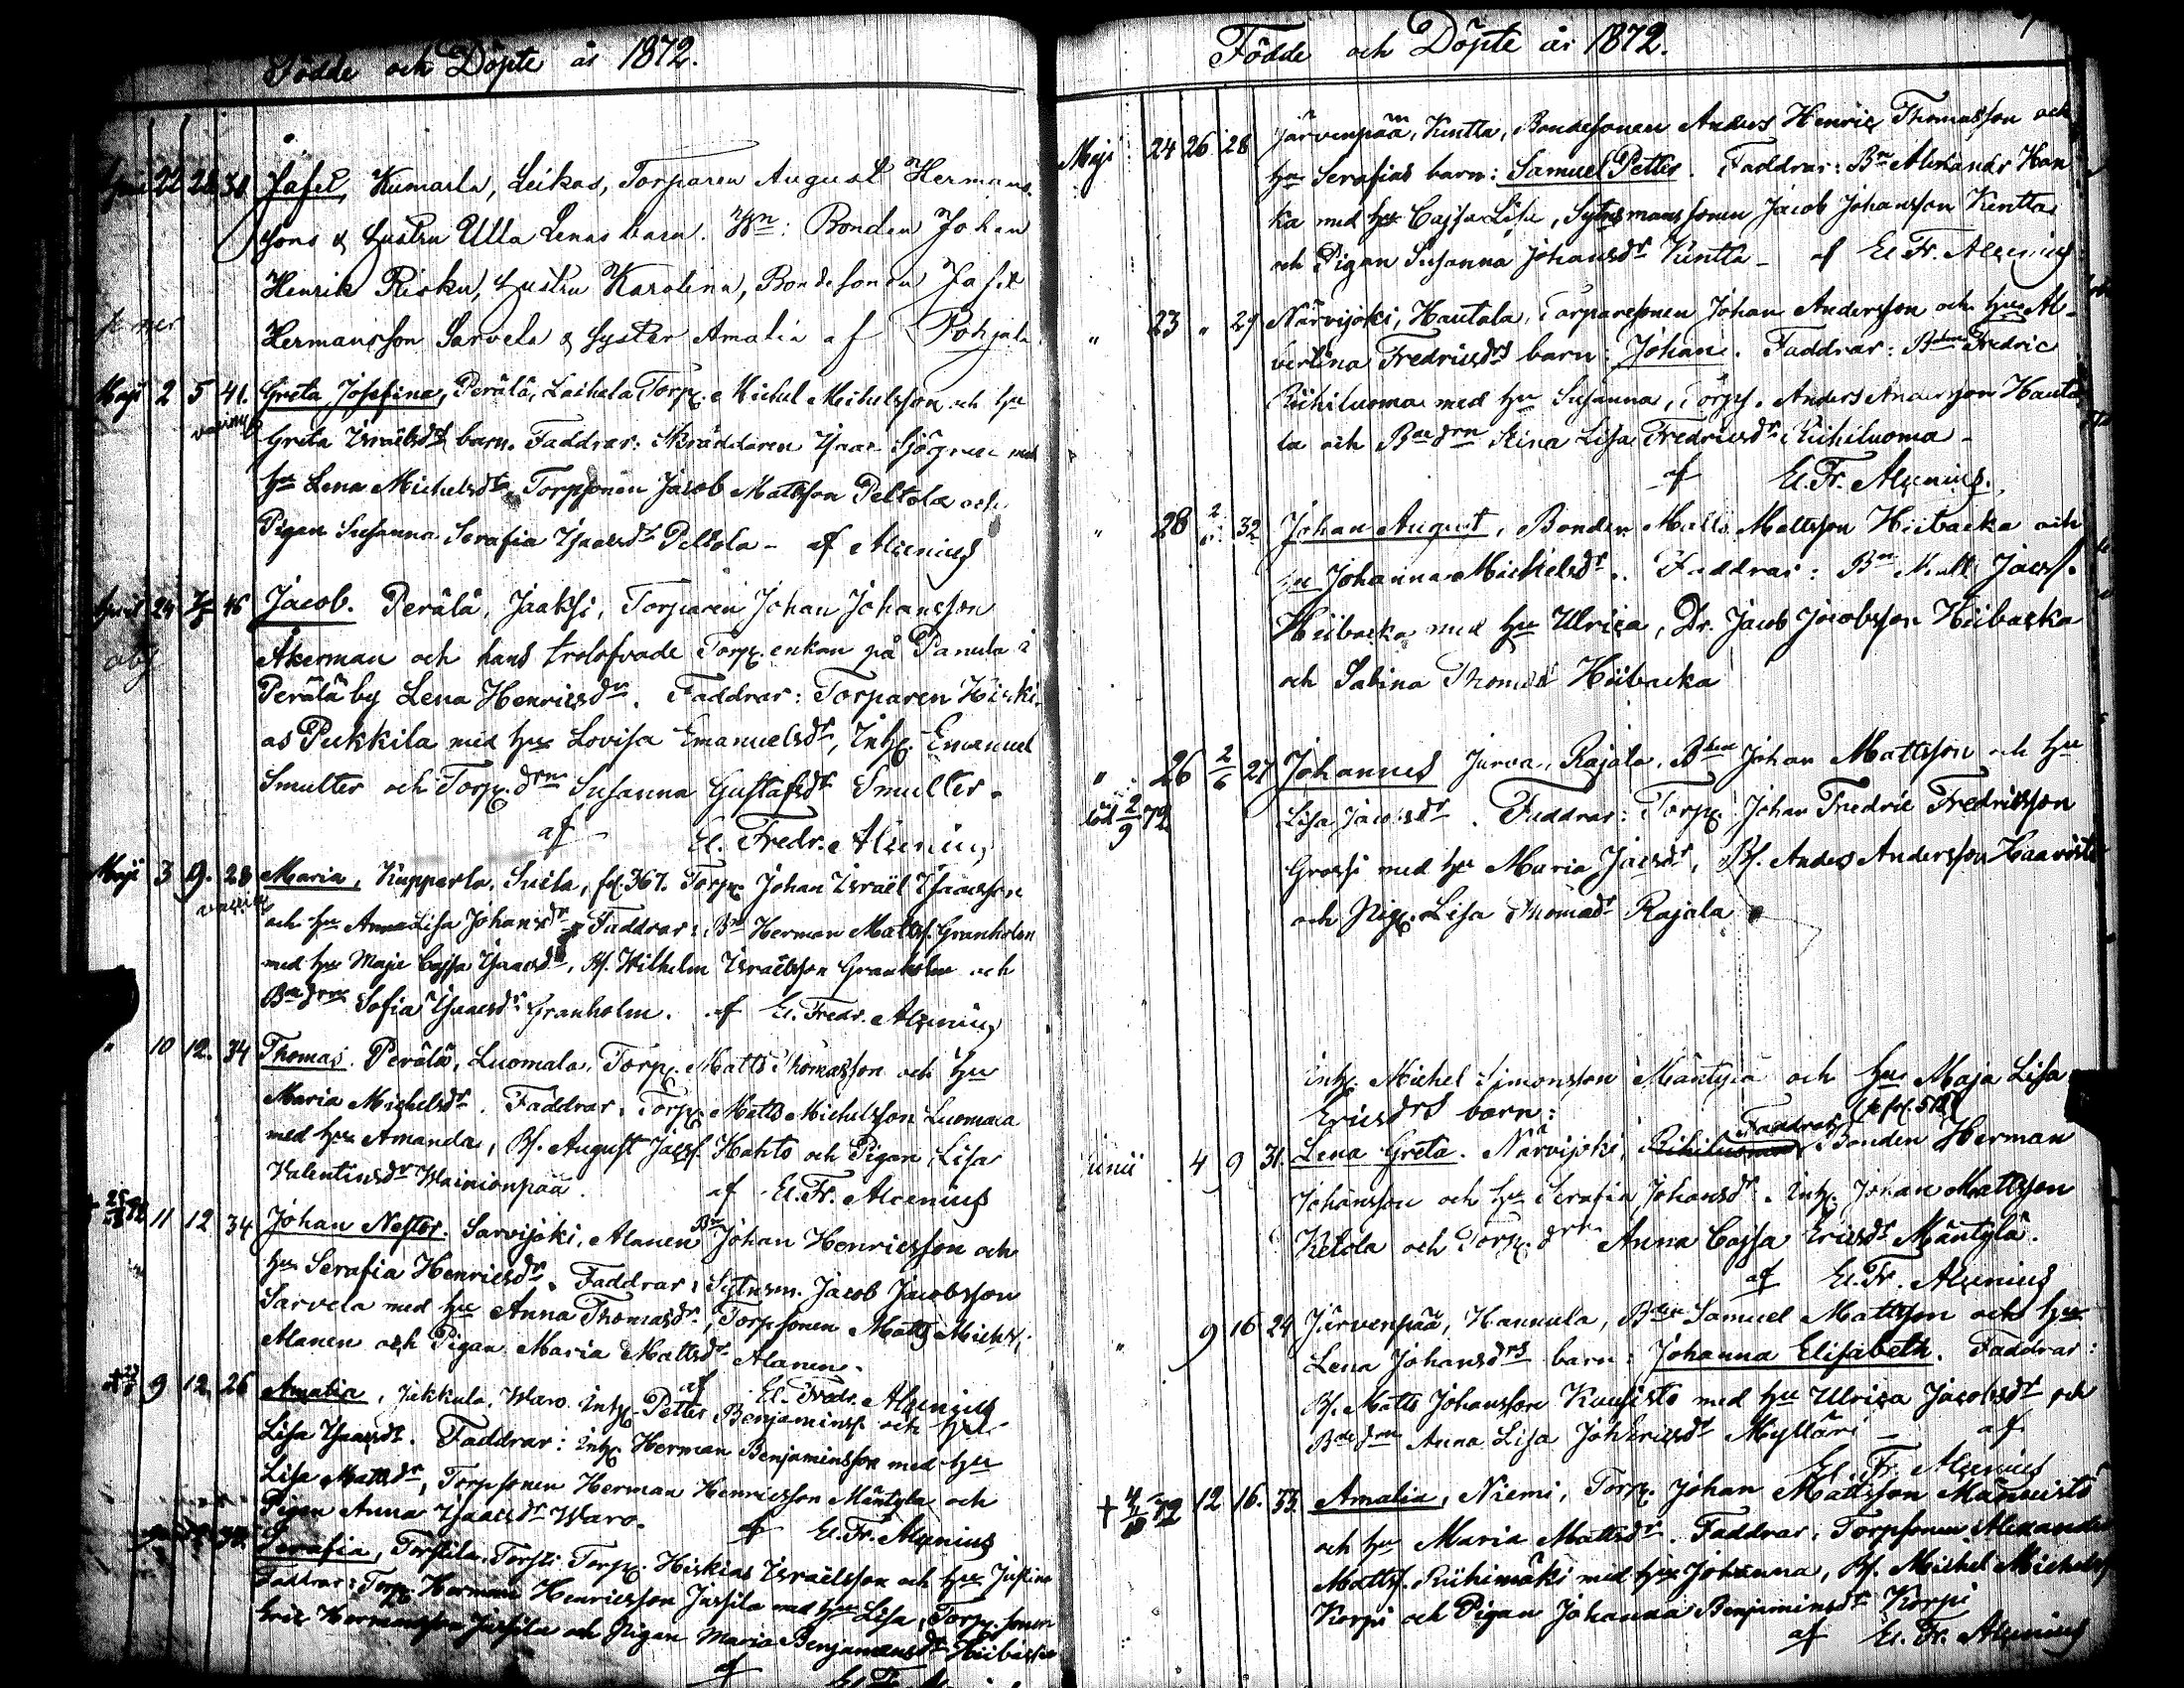 Födde och Döpte år 1872.
22 28 30 Jafet, Kumarla, Leikas, Torparen August Hermans
sons & hustru Ulla Lenas barn. Wn: Bonden Johan
Henrik Risku, hustru Karolina, Bondesonen Jafet
Hermansson Sarvela & Syster Amalia af Pohjala
Maji 2 5 41. Greta Josefina, Perälä, Laihela Torp. Michel Michelsson och hu
Greta Israelsdrs barn. Faddrar: Skräddaren Isaac Sjögren med
hu Lena Michelsdr, Torpsonen Jacob Mattsson Peltola och
Pigan Susanna Serafia Isacsdr Peltola - af Alcenius
April 24 7/5 46 Jacob. Perälä, Jaaksi, Torparen Johan Johansson
Åkerman och hans trolofvade Torp. enkan på Panula i
Perälä by Lena Henricsdr. Faddrar: Torparen Hiski
as Pukkila med hu Lovisa Emanuelsdr, Inh. Emanuel
Smulter och Torp. drn Susanna Gustafsdr Smulter.
af El. Fredr. Alcenius
Maji 3 9. 28 Maria, Kupparla, Suila, fol. 367. Torp. Johan Israël Isacsson
och hu Anna Lisa Johansdr Faddrar: Bn Herman Matts. Granholm
med hu Maja Cajsa Isacsdr, Bs. Wilhelm Israelsson Granholm och
Bdedrn Sofia Isacsdr Granholm. af El. Fredr. Alcenius
" 10 12. 34 Thomas. Perälä, Luomala, Torp. Matts Thomasson och hu
Maria Michelsdr. Faddrar: Torp. Matts Michelsson Luomala
med hu Amanda, Bs. August Jacss. Hahto och Pigan Lisa
Valentinsdr Wainionpää. af El. Fr. Alcenius
11 12 34 Johan Nestor: Sarvijoki, Alanen Bn Johan Henricsson och
hu Serafia Henricsdr. Faddrar: Sytnsm. Jacob Jacobsson
Sarvela med hu Anna Thomasdr, Torpsonen Matts Michels.
Alanen och Pigan Maria Mattsdr Alanen.
af El. Fredr. Alcenius
9 12. 26 Amalia, Jukkula, Waro. Inh. Petter Benjamins. och hu
Lisa Isacsdr. Faddrar: Inh. Herman Benjaminsson med hu
Lisa Mattsdr, Torpsonen Herman Henricsson Mäntyla och
Pigan Anna Isaacsdr Waro. af El. Fr. Alcenius
Serafia, Torstila, Torsti Torp. Hiskias Israëlsson och hu Justina
Faddrar: Torp. Herman Henricsson Jussila med hu Lisa, Torp. sonen
Eric Hermansson Jussila och Pigan Maria Benjaminsdr Hiibacka
af
Födde och Döpte år 1872.
Maji 24 26 28 Järvenpää, Kuntta, Bondesonen Anders Henric Thomasson och
hu Serafias barn: Samuel Petter. Faddrar: Bn Alexander Han
ka med hu Cajsa Lisa, Sytnsmanssonen Jacob Johansson Kuntta
och Pigan Susanna Johansdr Kuntta - af El. Fr. Alcenius
" 23 " 29 Närvijoki, Hautala, Torparesonen Johan Andersson och hu Al-
bertina Fredricsdrs barn: Johan. Faddrar: Bden Fredric
Riihiluoma med hu Susanna, Torps. Anders Andersson Hauta
la och Bdedrn Stina Lisa Fredricsdr Riihiluoma -
af El. Fr. Alcenius.
" 28 2/6 32 Johan August, Bonden Matts Mattsson Hiibacka och
hu Johanna Michelsdr. Faddrar: Bn Matts Jacss.
Hiibacka med hu Ulrica, Dr. Jacob Jacobsson Hiibacka
och Sabina Thomasdr Hiibacka
" 26 2/6 27 Johannes Jurva, Rajala, Bden Johan Mattsson och hu
död 2/9 72. Lisa Jacobsdr. Faddrar: Torp. Johan Fredric Fredricsson
Grossi med hu Maria Jacsdr, Bs. Anders Andersson Haavisto
och Pig. Lisa Thomasdr Rajala
Inh. Michel Simonsson Mäntylä och hu Maja Lisa
Ericsdrs barn: fol. 518
Junii 4 9 31. Lena Greta. Närvijoki, Riihiluoma Faddrar: Bonden Herman
Johansson och hu Serafia Johansdr. Inh. Johan Mattsson
Ketola och Torp. drn Anna Cajsa Ericsdr Mäntylä.
af El. Fr. Alcenius
" 9 16 24 Järvenpää, Hannula, Bden Samuel Mattsson och hu
Lena Johansdrs barn: Johanna Elisabeth. Faddrar:
Bs. Matts Johansson Kuusisto med hu Ulrica Jacobsdr och
Bdedrn Anna Lisa JohEricsdr Mylläri - af
El. Fr. Alcenius
12 16. 33. Amalia, Niemi, Torp. Johan Mattsson Mannisto
och hu Maria Mattsdr. Faddrar: Torpsonen Alexander
Mattss. Riihimäki med hu Johanna, Bs. Michel Michels.
Korpi och Pigan Johanna Benjaminsdr Korpi
af El. Fr. Alcenius